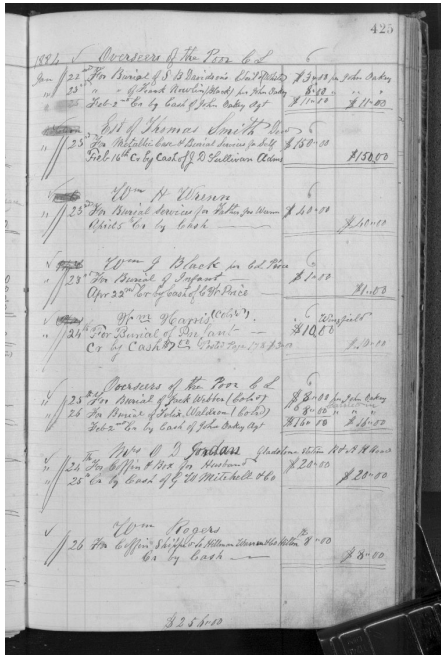 425
1884 Overseers of the Poor C L
Jan 22nd For Burial of S B Davidson's Child (White) $3.00 per John Oakey
" 23rd " " of Frank Rowling (Black) for 8.00 " "
Feb 2nd Cr by Cash of John Oakey Agt $11.00 $11.00
Est of Thomas Smith Decd
25th For Metallic Case & Burial Services for Self $150.00
Feb 16th Cr by Cash of J D Sullivan Adms $150.00
Wm H Wrenn
23rd For Burial Services for Father $40.00
April 5 Cr by Cash $40.00
Wm J Black per C W Price
23rd For Burial of Infant $1.00
Apr 22nd Cr by Cash of C W Price $1.00
Harris (Cold) Wingfield
24th For Burial of Infant $10.00
Cr by Cash
Overseers of the Poor C L
25th For Burial of Jack Webber (Cold) $8.00 per John Oakey
26 For Burial of Felix Waldron (Cold) 8.00 " " "
Feb 2nd Cr by Cash of John Oakey Agt $16.00 $16.00
Mrs O D Jordan Gladstone Station
24 For Coffin & Box for Husband $20.00
25th Cr by Cash of G W Mitchell & Co $20.00
Wm Rogers
26 For Coffin Shipped to 8.00
Cr by Cash $8.00
$256.00